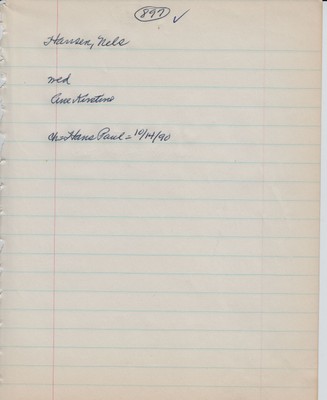 897 ✓
Hansen, Nels
med
Ane Kirstine
ch = Hans Paul = 10/14/90